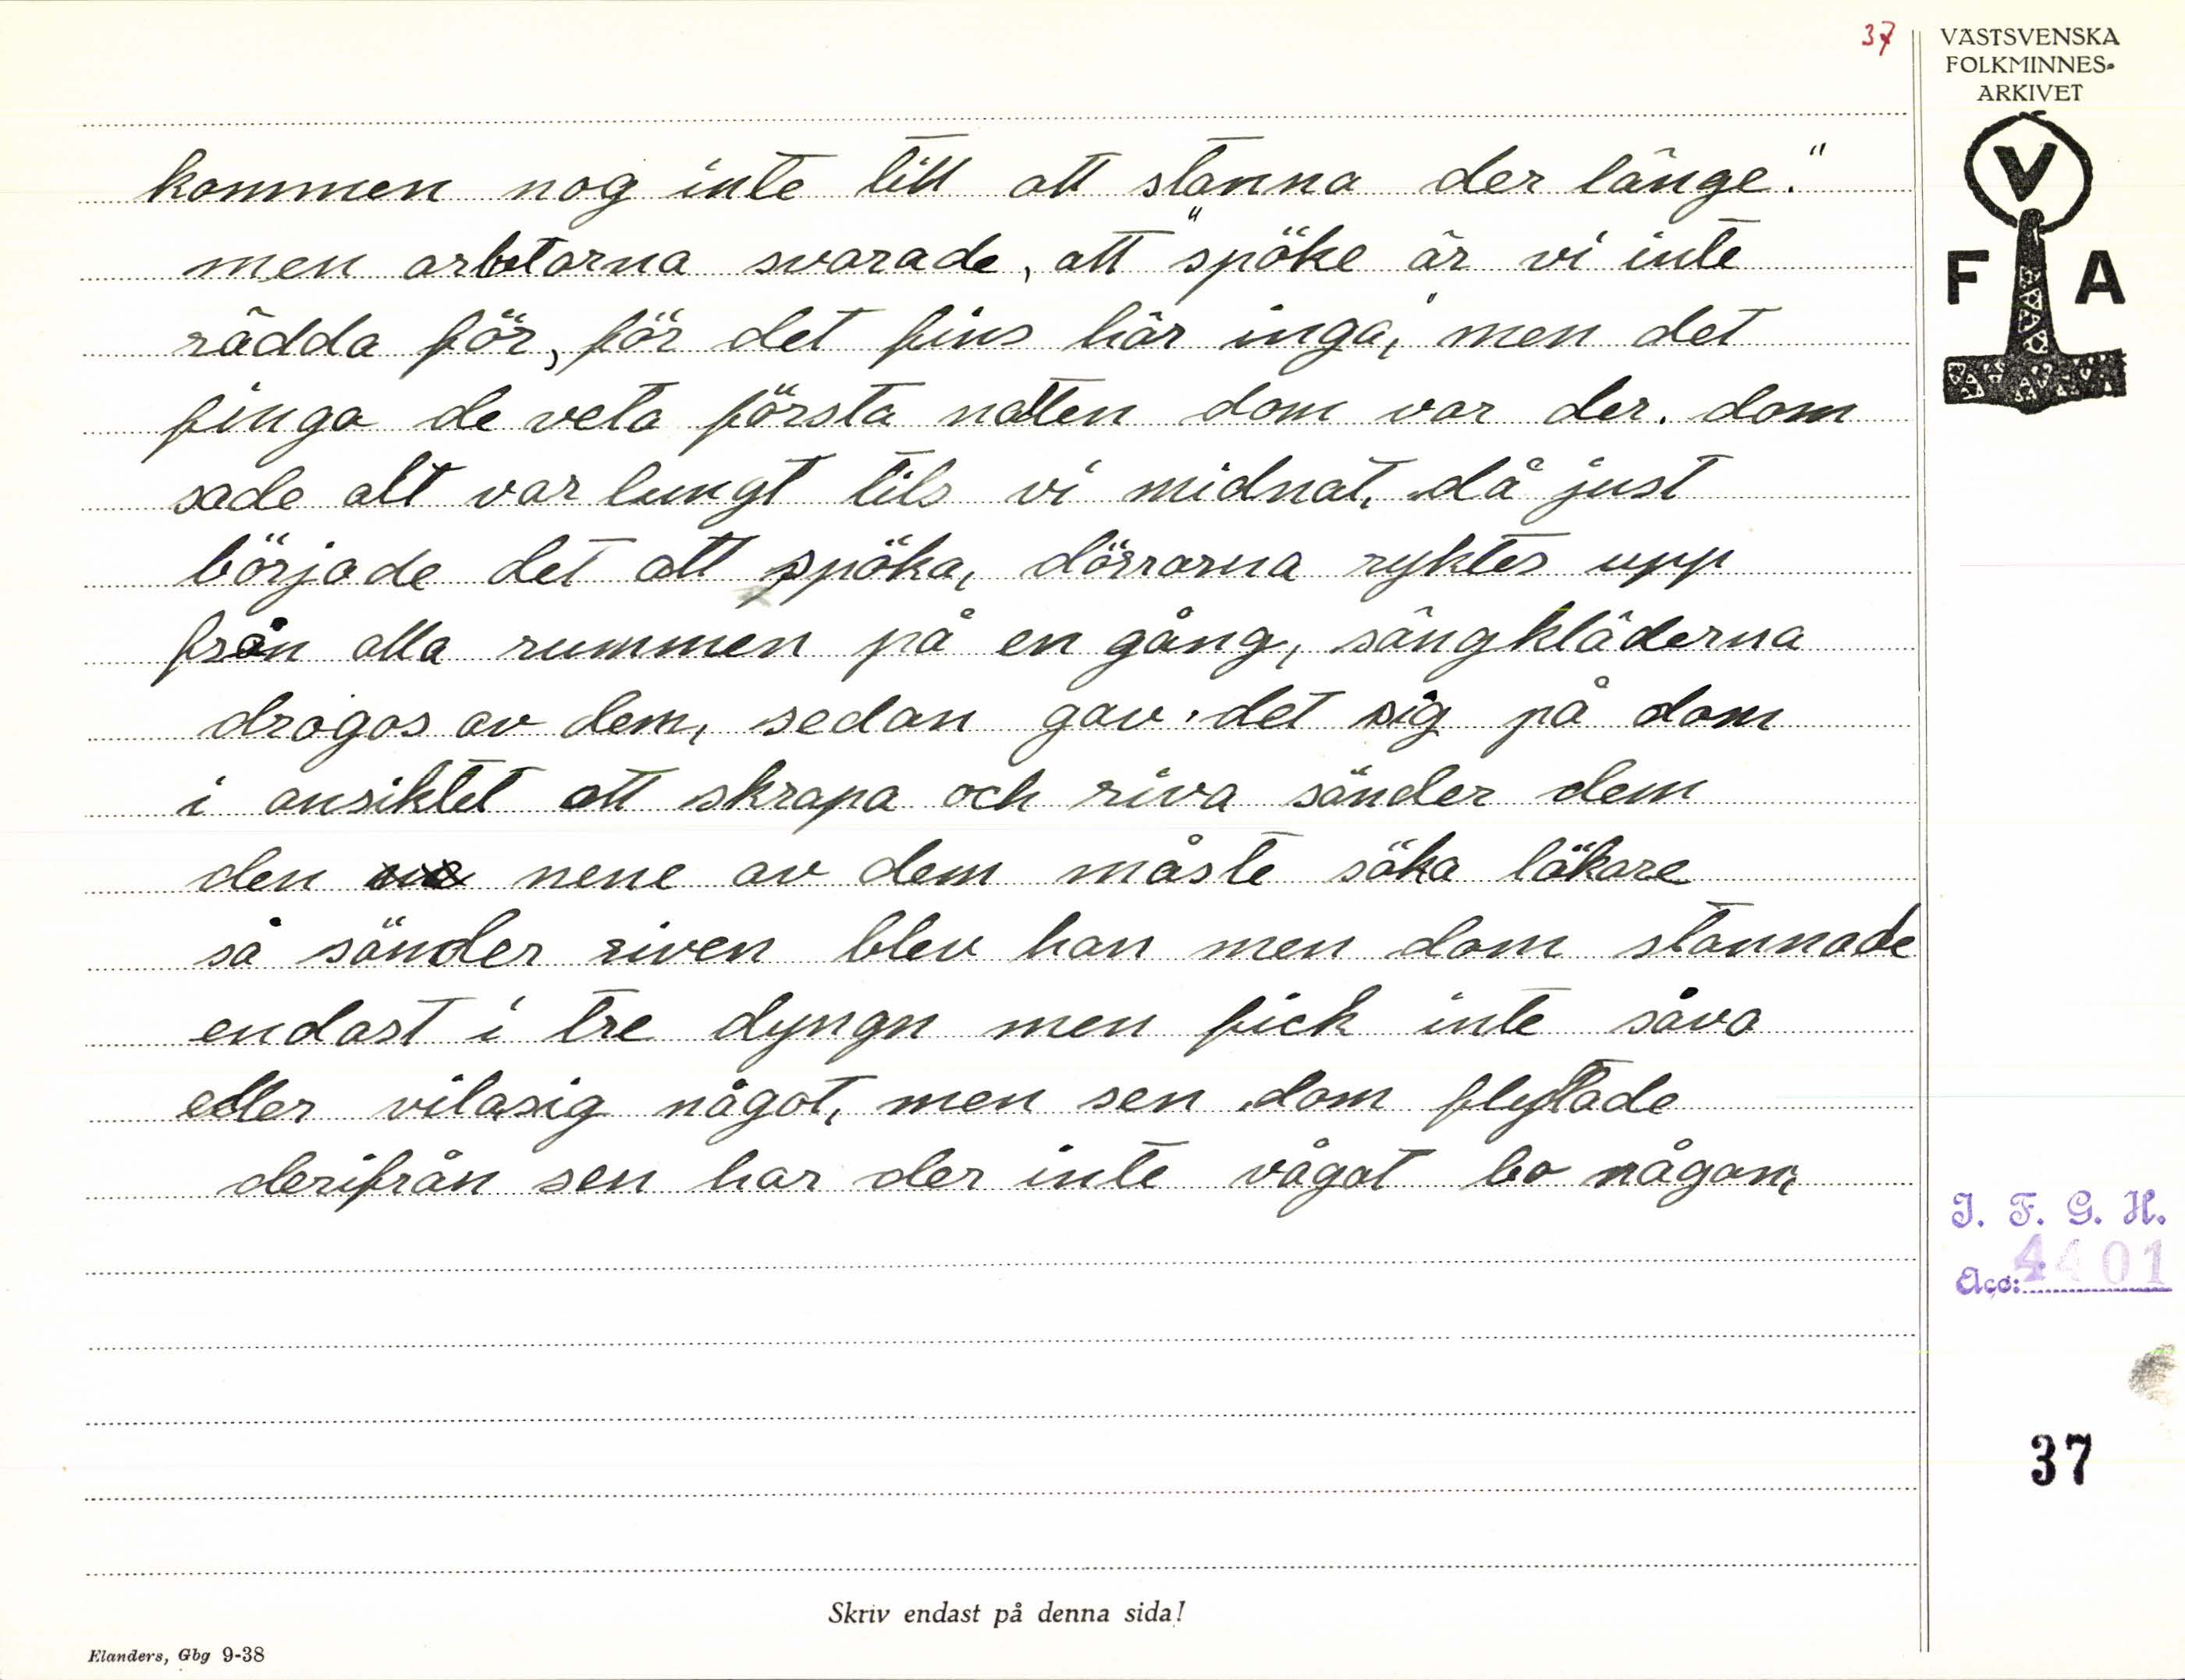 37
VÄSTSVENSKA
FOLKMINNES-
ARKIVET
V
F A
kommen nog inte till att stanna der länge."
men arbetarna svarade, att "spöke är vi inte
rädda för, för det fins här inga," men det
finga de veta första natten dom var der. dom
sade alt var lungt tils vi midnat, då just
började det att spöka, dörrarna ryktes upp
från alla rummen på en gång, sängkläderna
drogos av dem, sedan gav det sig på dom
i ansiktet att skrapa och riva sänder dem
den nene av dem måste söka läkare
så sänder riven blev han men dom stannade
endast i tre dyngn men fick inte såva
eller vilasig något, men sen dom flyttade
derifrån sen har der inte vågat bo någon,
I. F. G. H.
Acc: 4401
37
Skriv endast på denna sida!
Elanders, Gbg 9-38